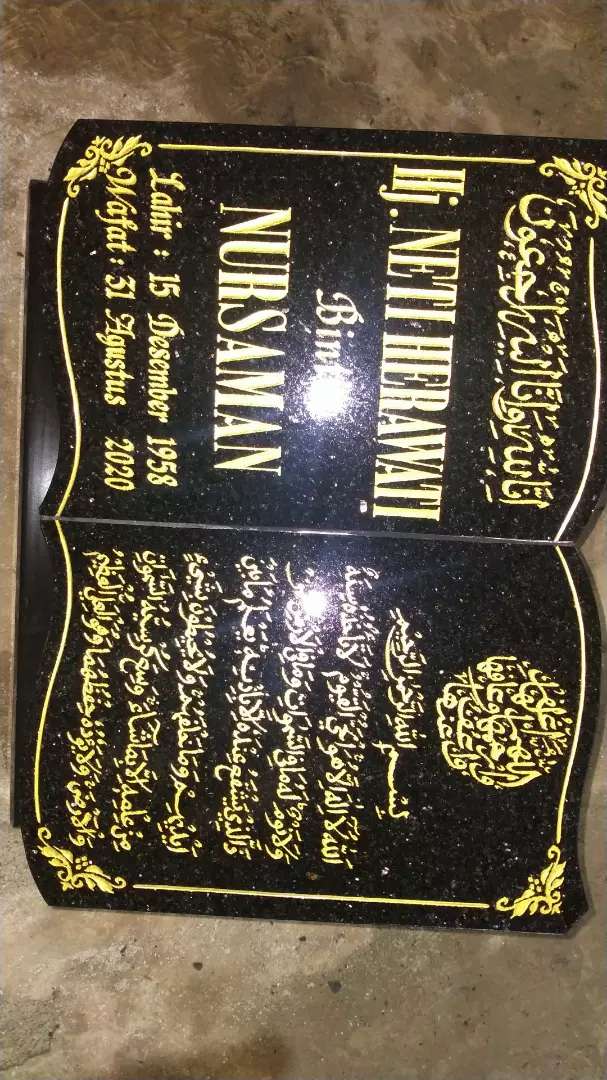 إنا لله وإنا إليه راجعون
Hj. NETI HERAWATI
Binti
NURSAMAN
Lahir : 15 Desember 1958
Wafat : 31 Agustus 2020
بسم الله الرحمن الرحيم
الله لا إله إلا هو الحي القيوم لا تأخذه سنة
ولا نوم له ما في السموات وما في الأرض من
ذا الذي يشفع عنده إلا بإذنه يعلم ما بين
أيديهم وما خلفهم ولا يحيطون بشيء
من علمه إلا بما شاء وسع كرسيه السموات
والأرض ولا يؤده حفظهما وهو العلي العظيم